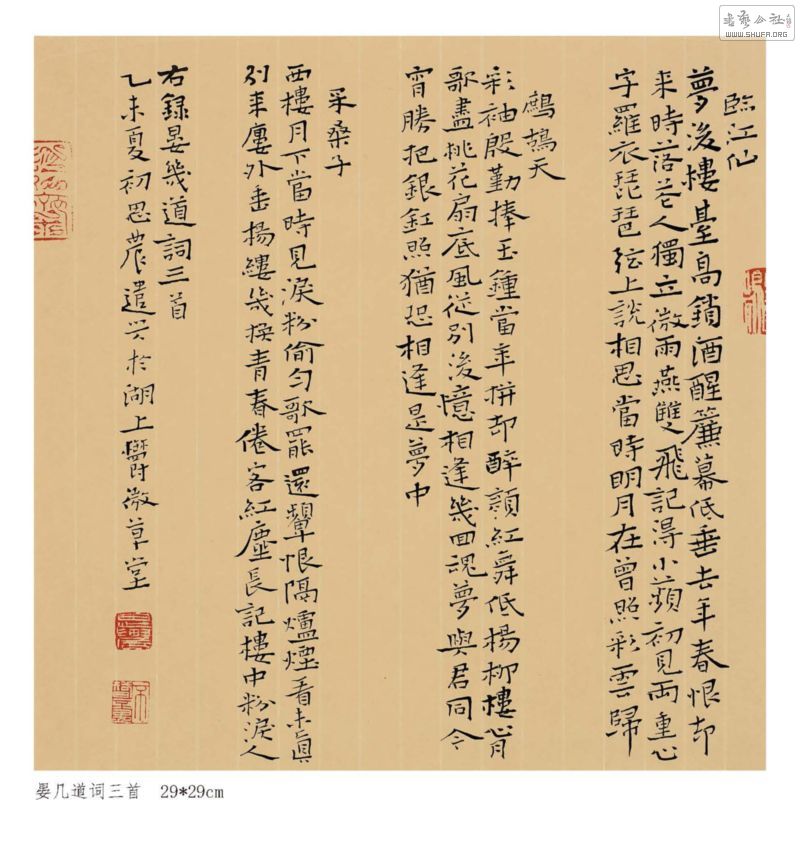 書藝公社
WWW.SHUFA.ORG
臨江仙
夢後樓臺高鎖酒醒簾幕低垂去年春恨却
来時落花人獨立微雨燕雙飛記得小蘋初見兩重心
字羅衣琵琶弦上說相思當時明月在曾照彩雲歸
鷓鴣天
彩袖殷勤捧玉鍾當年拼却醉顏紅舞低楊柳樓心月
歌盡桃花扇底風從別後憶相逢幾回魂夢與君同今
宵勝把銀釭照猶恐相逢是夢中
采桑子
西樓月下當時見淚粉偷勻歌罷還顰恨隔爐煙看未真
別来廔外垂楊縷幾換青春倦客紅塵長記樓中粉淚人
右録晏幾道詞三首
乙未夏初思農遣興於湖上欝微草堂
晏几道词三首 29*29cm